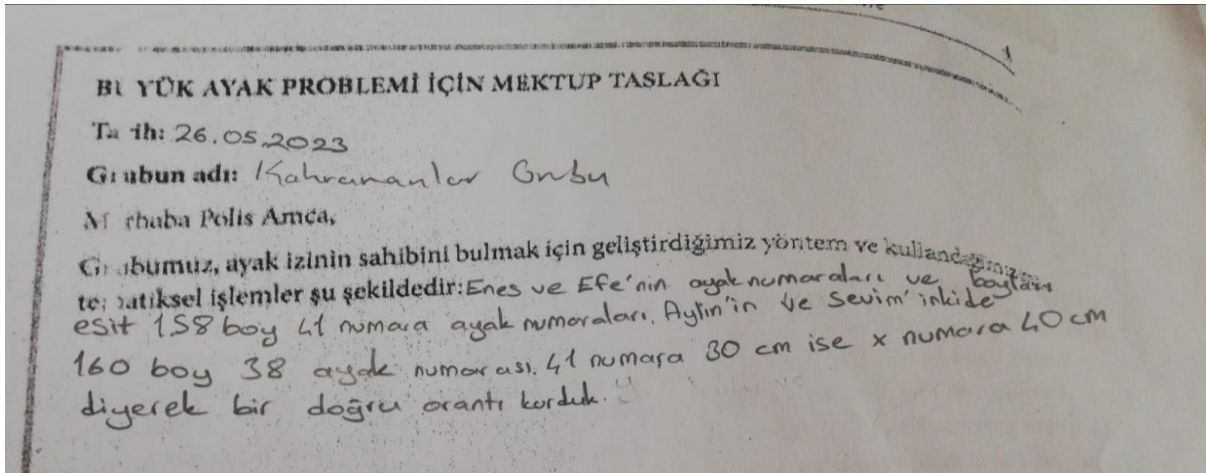 BÜYÜK AYAK PROBLEMİ İÇİN MEKTUP TASLAĞI
Tarih: 26.05.2023
Grubun adı: Kahramanlar Grubu
Merhaba Polis Amca,
Grubumuz, ayak izinin sahibini bulmak için geliştirdiğimiz yöntem ve kullandığımız
matematiksel işlemler şu şekildedir: Enes ve Efe'nin ayak numaraları ve boyları
eşit 158 boy 41 numara ayak numaraları. Aylin'in ve Sevim'inkide
160 boy 38 ayak numarası. 41 numara 30 cm ise x numara 40 cm
diyerek bir doğru orantı kurduk.